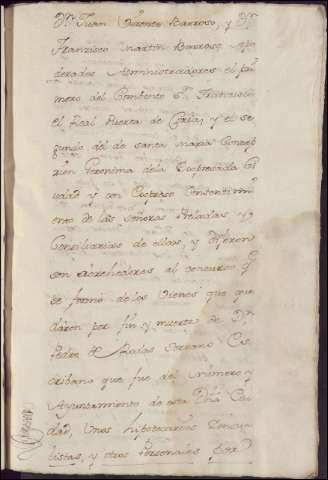 Dn. Juan Vizente Barroso, y Dn.
Francisco Martin Barroso, Apo
derados Administradores el pri
mero del Combento Sn. Francisco
el Real Puerta de Coria, y el se
gundo del de santa maria Concep
cion Geronima de la Expresada Ci
udad y con Expreso Consentimi
ento de las señoras Preladas y
Consiliarias de ellos, y Dijeron
son acrehedores al concurso qe.
se formó de los vienes que que
daron por fin y muerte de Dn.
Pedro de Rodas Serrano Es
cribano que fue del numero y
Ayuntamiento de esta Dha Ciu
dad, Unos hipotecarios Censua
listas, y otros Personales por